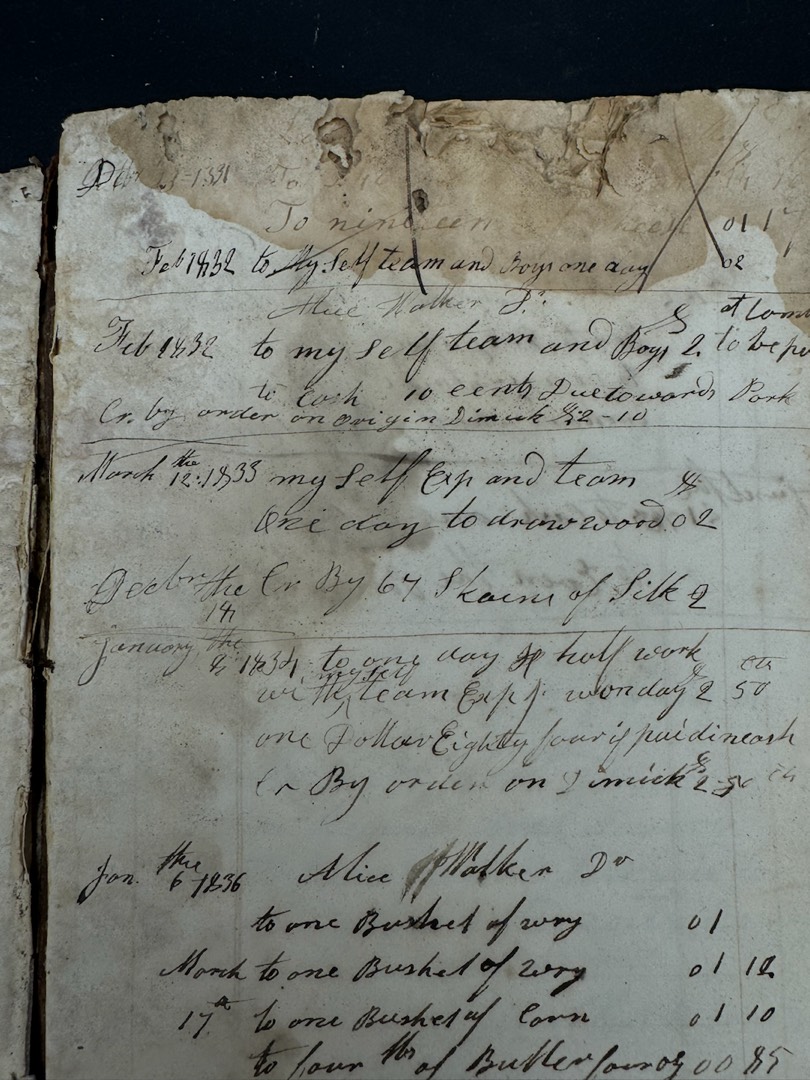 1831 To
To nineteen 01 17
Feb 1832 to My Self team and Boys one day 02
Alice Walker Dr
Feb 1832 to my Self team and Boys $ 2. to be
to Cash 10 cents Due towards Pork
Cr. by order on Origin Dimick $ 2-10
March the 12: 1833 my Self Exp and team $
One day to draw wood 02
Decbr the Cr By 67 Skains of Silk 2
January the 1834 to one day & half work
with my self team Exp won day $ 2 50 cts
one Dollar Eighty four if paid in cash
Cr By order on Dimick $ 2-50 cts
Jan. the 6 1836 Alice Walker Dr
to one Bushel of wry 01
March to one Bushel of wry 01 12
17th to one Bushel of Corn 01 10
to four lbs of Butter four oz 00 85